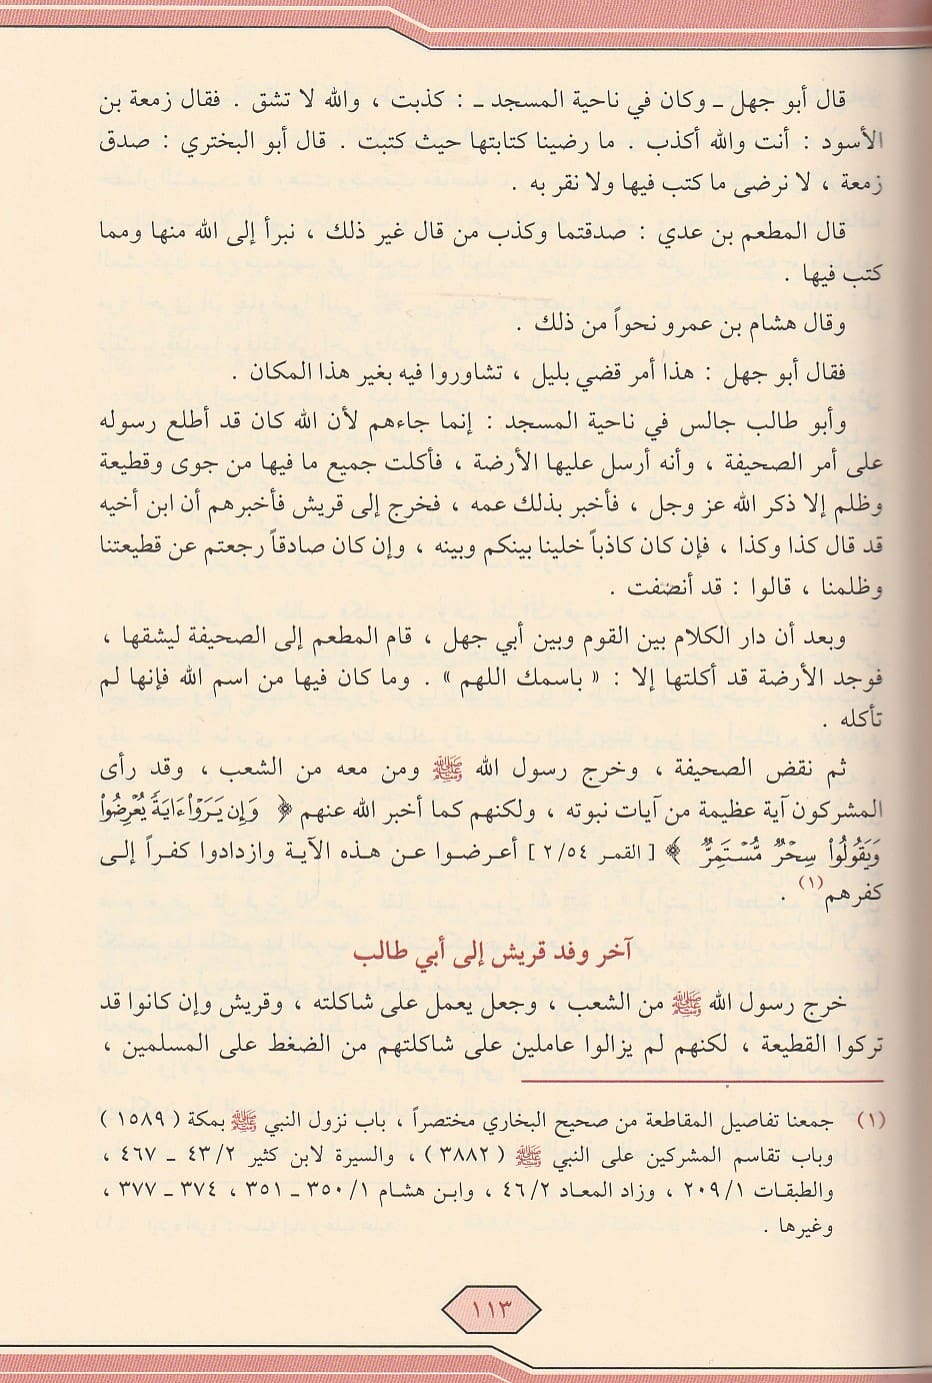 قال أبو جهل ـ وكان في ناحية المسجد ـ : كذبت ، والله لا تشق . فقال زمعة بن
الأسود : أنت والله أكذب . ما رضينا كتابتها حيث كتبت . قال أبو البختري : صدق
زمعة ، لا نرضى ما كتب فيها ولا نقر به .
قال المطعم بن عدي : صدقتما وكذب من قال غير ذلك ، نبرأ إلى الله منها ومما
كتب فيها .
وقال هشام بن عمرو نحواً من ذلك .
فقال أبو جهل : هذا أمر قضي بليل ، تشاوروا فيه بغير هذا المكان .
وأبو طالب جالس في ناحية المسجد : إنما جاءهم لأن الله كان قد أطلع رسوله
على أمر الصحيفة ، وأنه أرسل عليها الأرضة ، فأكلت جميع ما فيها من جوى وقطيعة
وظلم إلا ذكر الله عز وجل ، فأخبر بذلك عمه ، فخرج إلى قريش فأخبرهم أن ابن أخيه
قد قال كذا وكذا ، فإن كان كاذباً خلينا بينكم وبينه ، وإن كان صادقاً رجعتم عن قطيعتنا
وظلمنا ، قالوا : قد أنصفت .
وبعد أن دار الكلام بين القوم وبين أبي جهل ، قام المطعم إلى الصحيفة ليشقها ،
فوجد الأرضة قد أكلتها إلا : « باسمك اللهم » . وما كان فيها من اسم الله فإنها لم
تأكله .
ثم نقض الصحيفة ، وخرج رسول الله ﷺ ومن معه من الشعب ، وقد رأى
المشركون آية عظيمة من آيات نبوته ، ولكنهم كما أخبر الله عنهم ﴿ وَإِن يَرَوْا۟ ءَايَةً يُعْرِضُوا۟
وَيَقُولُوا۟ سِحْرٌ مُّسْتَمِرٌّ ﴾ [ القمر ٥٤/ ٢ ] أعرضوا عن هذه الآية وازدادوا كفراً إلى
كفرهم(١) .
آخر وفد قريش إلى أبي طالب
خرج رسول الله ﷺ من الشعب ، وجعل يعمل على شاكلته ، وقريش وإن كانوا قد
تركوا القطيعة ، لكنهم لم يزالوا عاملين على شاكلتهم من الضغط على المسلمين ،
(١) جمعنا تفاصيل المقاطعة من صحيح البخاري مختصراً ، باب نزول النبي ﷺ بمكة ( ١٥٨٩ )
وباب تقاسم المشركين على النبي ﷺ ( ٣٨٨٢ ) ، والسيرة لابن كثير ٢/ ٤٣ ـ ٤٦٧ ،
والطبقات ١/ ٢٠٩ ، وزاد المعاد ٢/ ٤٦ ، وابن هشام ١/ ٣٥٠ ـ ٣٥١ ، ٣٧٤ ـ ٣٧٧ ،
وغيرها .
١١٣